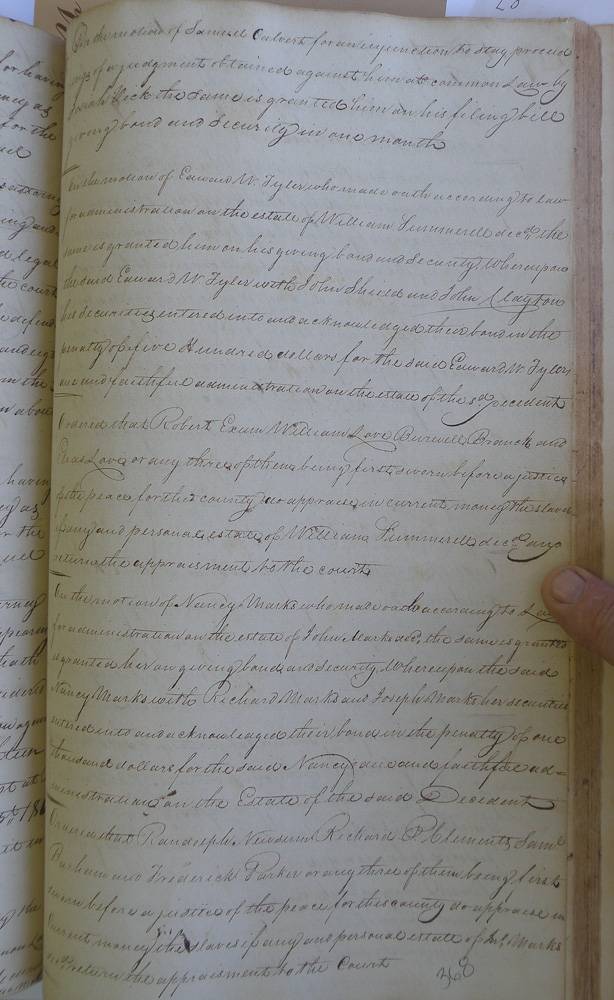 On the motion of Samuel Calvert for an injunction to stay proceed
ings of a judgment obtained against him at common Law by
Sarah the same is granted him on his filing bill
giving bond and Security in one month
On the motion of Edward W. Tyler who made oath according to law
for administration on the estate of William Summerell decd. the
same is granted him on his giving bond and Security Whereupon
the said Edward W Tyler with John Sheild and John Clayton
his Securities entered into and acknowledged their bond in the
penalty of five Hundred dollars for the said Edward W. Tylers
due and faithful administration on the estate of the sd. Decedent
Ordered that Robert Exum William Love Burwell Branch and
Love or any three of them being first sworn before a justice
of the peace for this county do appraise in current money the slaves
if any and personal estate of William Summerell decd. and
return the appraisment to the court
On the motion of Nancy Marks who made oath according to Law
for administration on the estate of John Marks dec, the same is granted
is granted her on giving bond and security Whereupon the said
Nancy Marks with Richard Marks and Joseph Marks her securities
entered into and acknowledged their bond in the penalty of one
thousand dollars for the said Nancy due and faithful ad=
ministration on the Estate of the said Decedent
Ordered that Randolph Newsum Richard P Clements Saml
Parham and Frederick Parker or any three of them being first
sworn before a justice of the peace for this county do appraise in
Current money the slaves if any and personal estate of Jno. Marks
return the appraisment to the Court